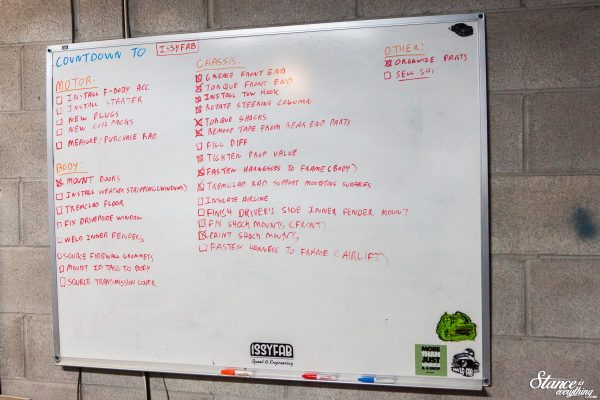 COUNTDOWN TO ISSYFAB
MOTOR:
INSTALL F-BODY ACC
INSTALL STARTER
NEW PLUGS
NEW COIL PACKS
MEASURE/PURCHASE RAD
BODY:
MOUNT DOORS
INSTALL WEATHER STRIPPING (WINDOWS)
TREMCLAD FLOOR
FIX DRIVERSIDE WINDOW
WELD INNER FENDERS
SOURCE FIREWALL GROMMETS
MOUNT ID TAGS TO BODY
SOURCE TRANSMISSION COVER
CHASSIS:
GREASE FRONT END
TORQUE FRONT END
INSTALL TOW HOOK
ROTATE STEERING COLUMN
TORQUE SHOCKS
REMOVE TAPE FROM REAR END PARTS
FILL DIFF
TIGHTEN PROP VALVE
FASTEN HARNESSES TO FRAME (BODY)
TREMCLAD RAD SUPPORT MOUNTING SURFACES
INSULATE AIRLINE
FINISH DRIVER'S SIDE INNER FENDER MOUNT
FIX SHOCK MOUNTS (FRONT)
PAINT SHOCK MOUNTS
FASTEN HARNESS TO FRAME (AIRLIFT)
OTHER:
ORGANIZE PARTS
SELL SHI
ISSYFAB
Speed & Engineering
MORE
THAN
JUST
& A DROP
Stance is
everything.com